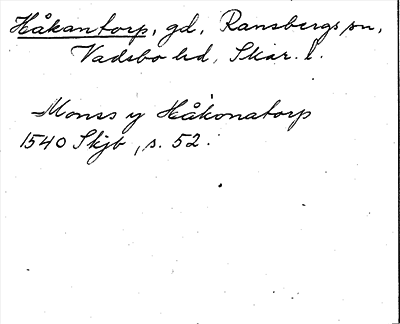 Håkantorp, gd, Ransbergs sn,
Vadsbo hd, Skar. l.
Monss y Håkonatorp
1540 Skjb, s. 52.